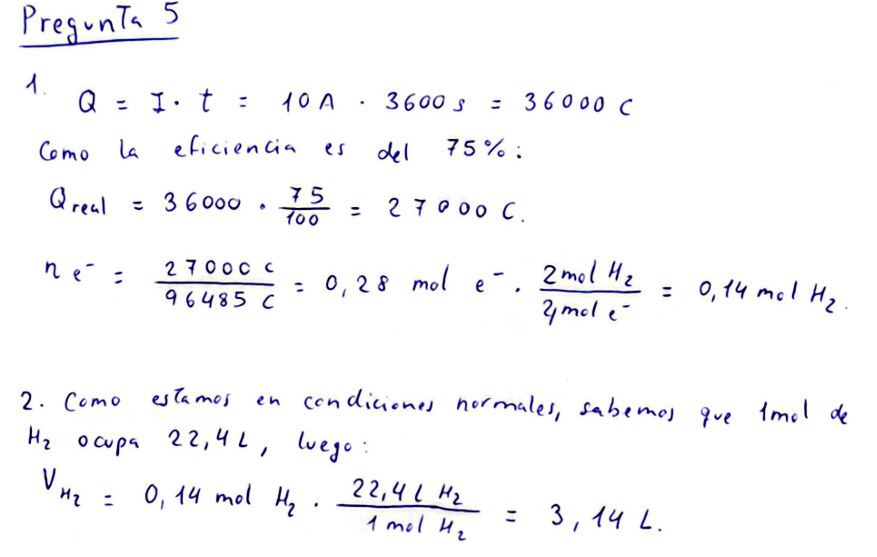 Pregunta 5
1. Q = I · t = 10 A · 3600 s = 36000 C
Como la eficiencia es del 75%:
Q real = 36000 · 75/100 = 27000 C.
n e⁻ = 27000 C/96485 C = 0,28 mol e⁻ · 2 mol H₂/4 mol e⁻ = 0,14 mol H₂.
2. Como estamos en condiciones normales, sabemos que 1 mol de
H₂ ocupa 22,4 L, luego:
V H₂ = 0,14 mol H₂ · 22,4 L H₂/1 mol H₂ = 3,14 L.